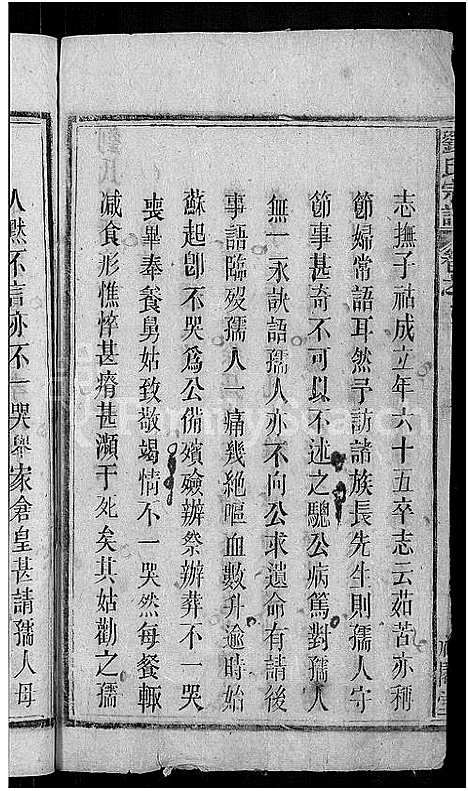 劉氏宗譜
志撫子祜成立年六十五卒志云茹苦亦稱
節婦常語耳然予訪諸族長先生則孺人守
節事甚奇不可以不述之驄公病篤對孺人
無一永訣語孺人亦不向公求遺命有請後
事語臨歿孺人一痛幾絕嘔血數升逾時始
蘇起卽不哭爲公備殯殮辦祭辦葬不一哭
喪畢奉養舅姑致敬竭情不一哭然每餐輒
減食形憔悴甚瘠甚瀕于死矣其姑勸之孺
人默不言亦不一哭舉家倉皇甚請孺人母